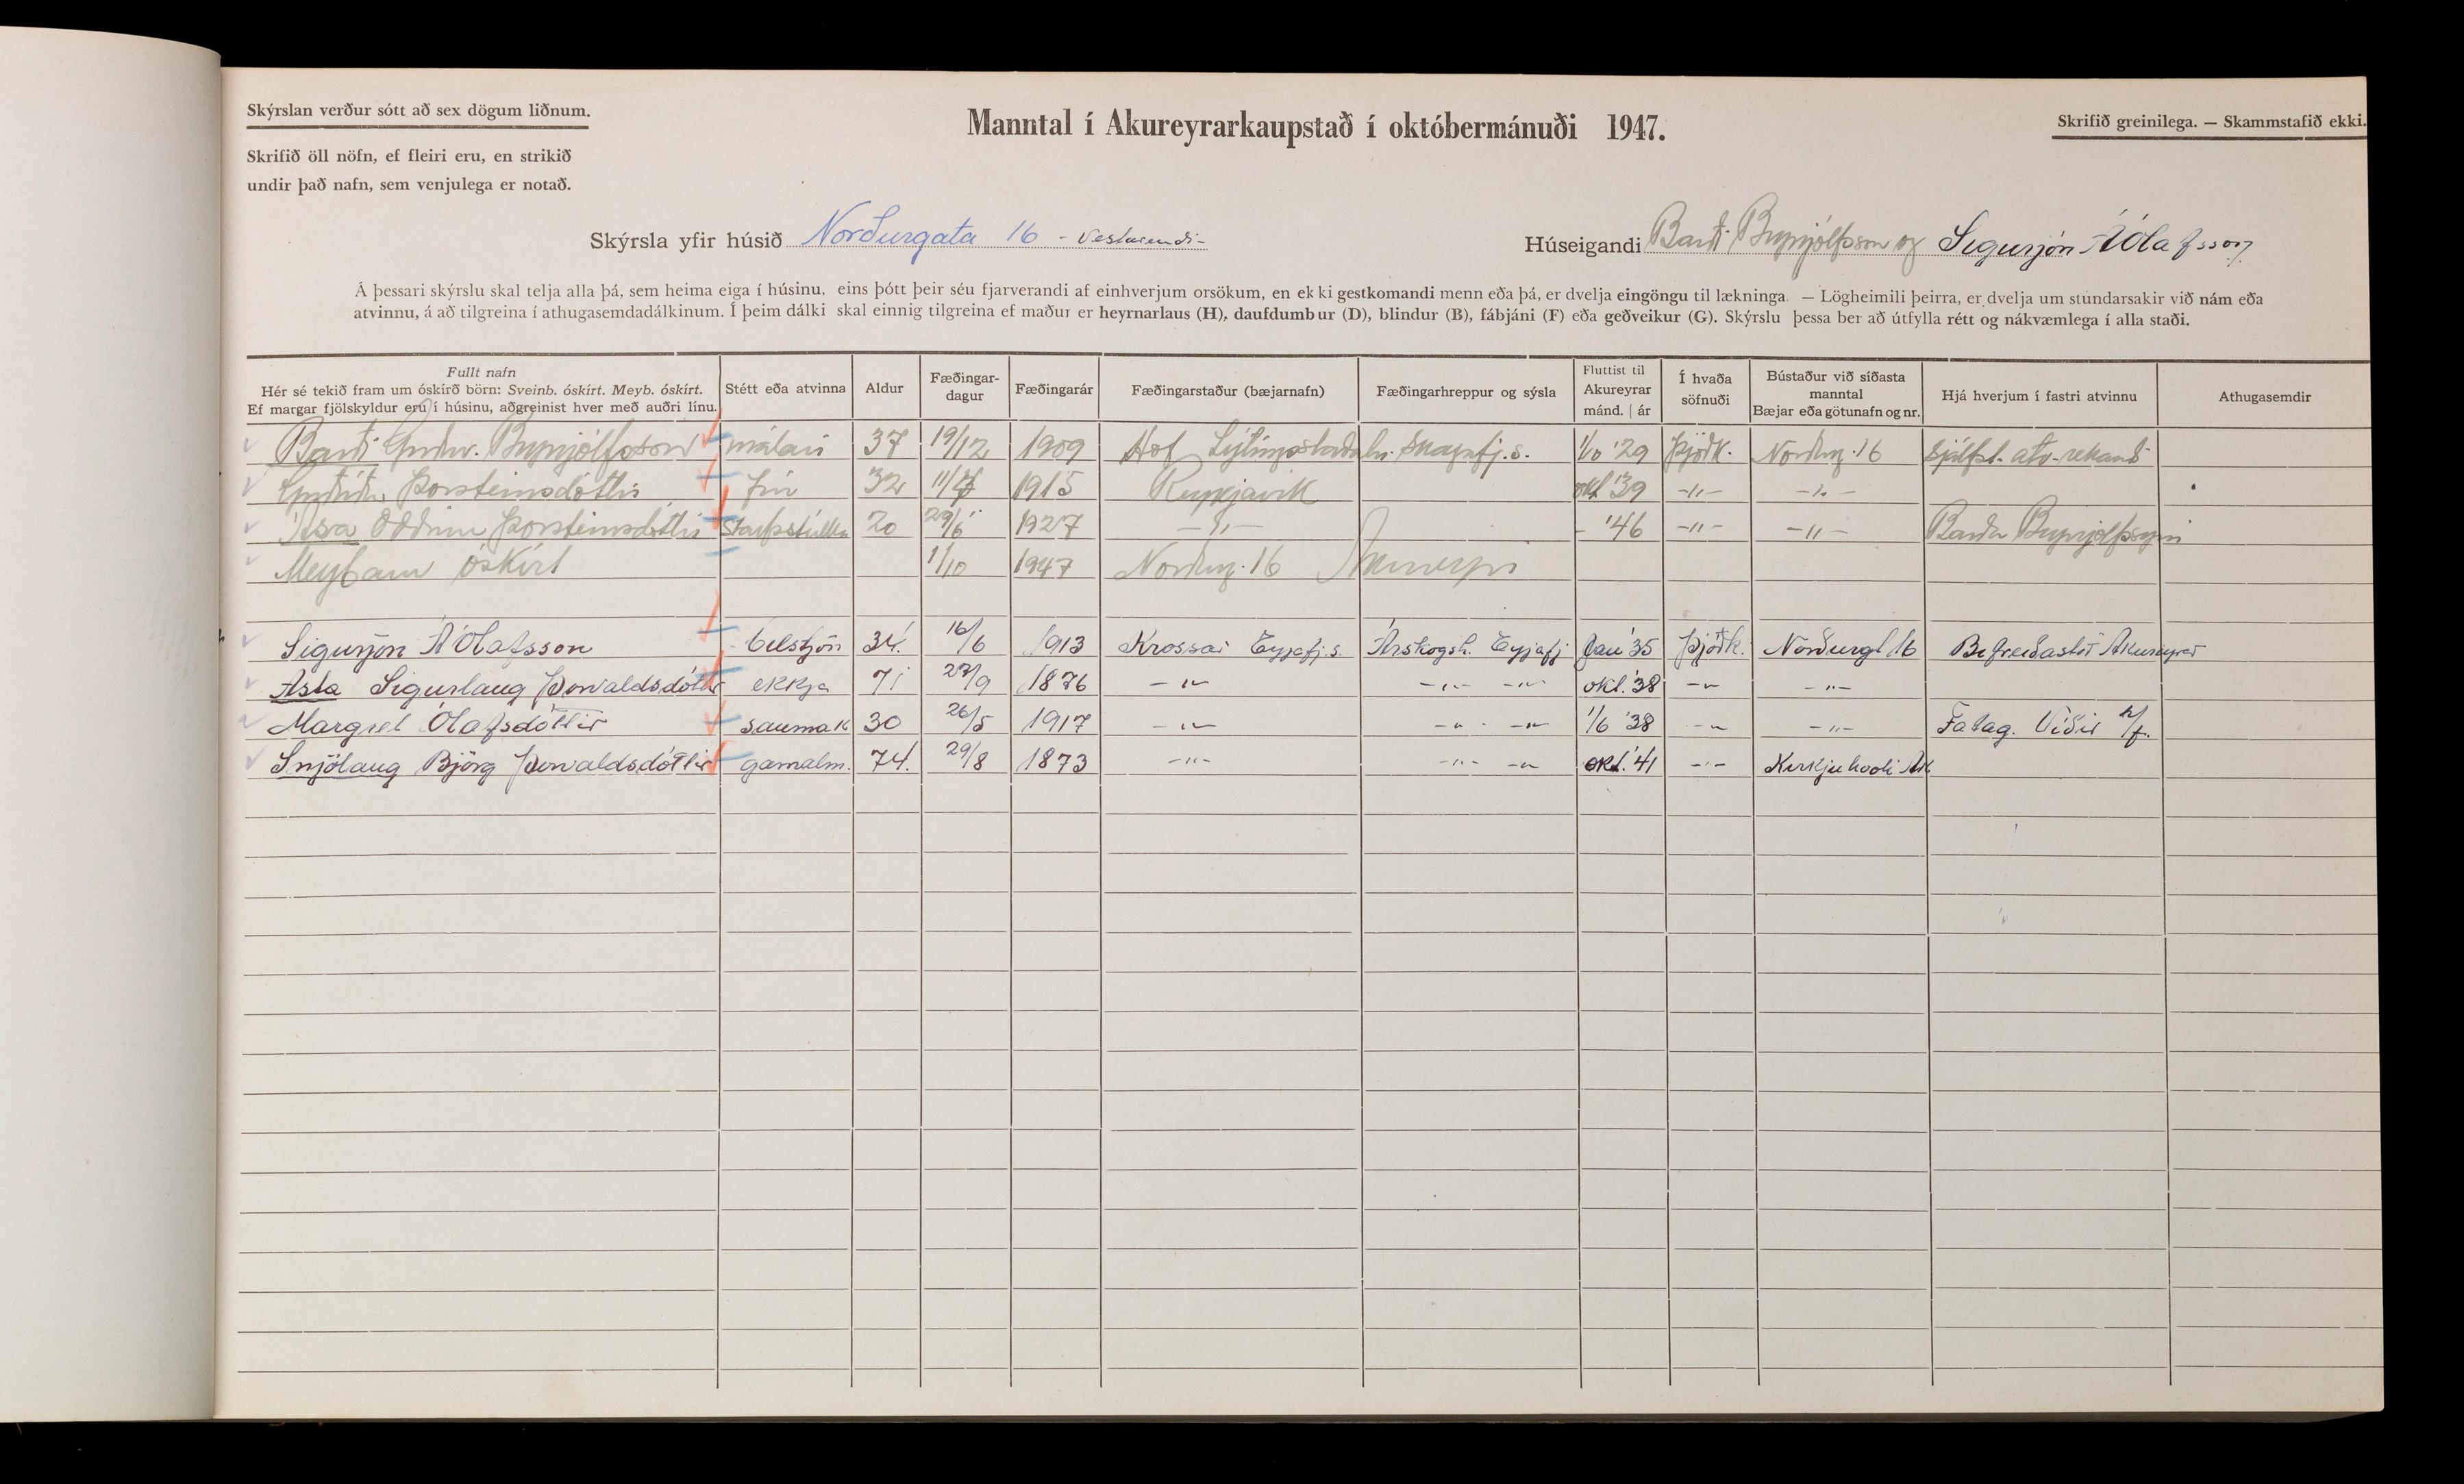 Skýrslan verður sótt að sex dögum liðnum.
Manntal í Akureyrarkaupstað í októbermánuði 1947.
Skrifið greinilega. — Skammstafið ekki.
Skrifið öll nöfn, ef fleiri eru, en strikið
undir það nafn, sem venjulega er notað.
Skýrsla yfir húsið Norðurgata 16 - Vesturendi-
Húseigandi Barði Brynjólfsson og Sigurjón Á Ólafsson
Á þessari skýrslu skal telja alla þá, sem heima eiga í húsinu, eins þótt þeir séu fjarverandi af einhverjum orsökum, en ekki gestkomandi menn eða þá, er dvelja eingöngu til lækninga. — Lögheimili þeirra, er dvelja um stundarsakir við nám eða
atvinnu, á að tilgreina í athugasemdadálkinum. Í þeim dálki skal einnig tilgreina ef maður er heyrnarlaus (H), daufdumbur (D), blindur (B), fábjáni (F) eða geðveikur (G). Skýrslu þessa ber að útfylla rétt og nákvæmlega í alla staði.
Fullt nafn
Hér sé tekið fram um óskírð börn: Sveinb. óskírt. Meyb. óskírt.
Ef margar fjölskyldur eru í húsinu, aðgreinist hver með auðri línu.
Stétt eða atvinna
Aldur
Fæðingar-
dagur
Fæðingarár
Fæðingarstaður (bæjarnafn)
Fæðingarhreppur og sýsla
Fluttist til
Akureyrar
mánd. | ár
Í hvaða
söfnuði
Bústaður við síðasta
manntal
Bæjar eða götunafn og nr.
Hjá hverjum í fastri atvinnu
Athugasemdir
Barði Guðm. Brynjólfsson málari 37 19/12 1909 Hof Lýtingsstaðahr. Skagafj.s. 1/10 '29 Þjóðk. Norðurg. 16 Sjálfst. atv.rekandi
Guðríður Þorsteinsdóttir frú 32 1915 Reykjavík okt '39 -"- -"-
Ása Oddrún Þorsteinsdóttir Starfsstúlka 20 29/6 1927 -"- - '46 -"- -"- Barða Brynjólfssyni
Meybarn óskírt 1/10 1947 Norðurg. 16 Akureyri
Sigurjón Á Ólafsson bílstjóri 34. 16/6 1913 Krossar Eyjafj.s. Árskógsh. Eyjafj Jan '35 Þjóðk. Norðurgt 16 Bifreiðastöð Akureyrar
Ásta Sigurlaug Þorvaldsdóttir ekkja 71 27/9 1876 -"- -"- -"- okt. '38 -"- -"-
Margret Ólafsdóttir saumak 30 26/5 1917 -"- -"- -"- 1/6 '38 -"- -"- Fatag. Víðir h/f.
Snjólaug Björg Þorvaldsdóttir gamalm. 74. 29/8 1873 -"- -"- -"- okt. '41 -"- Kirkjuhvoli Ak